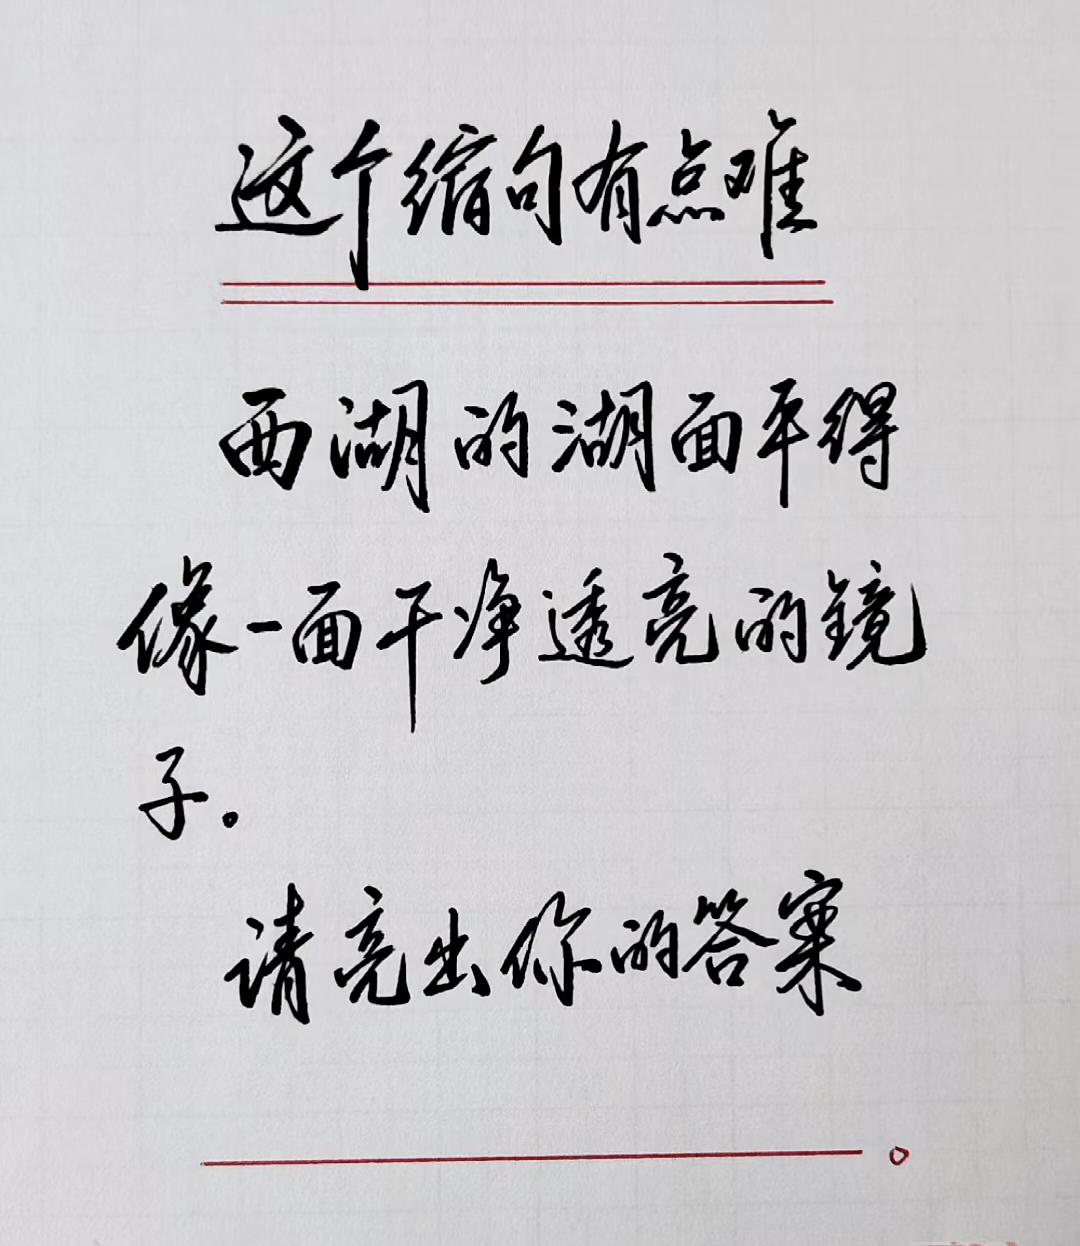 这个缩句有点难
西湖的湖面平得
像一面干净透亮的镜
子。
请亮出你的答案
。